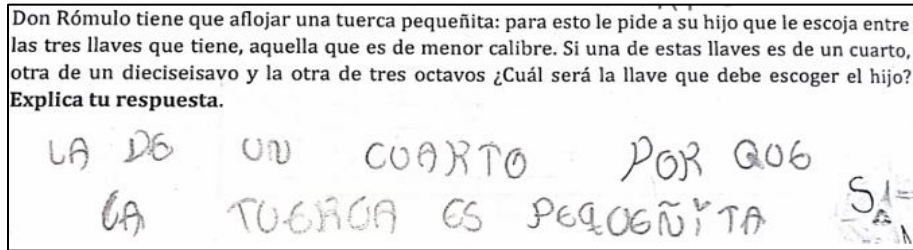 Don Rómulo tiene que aflojar una tuerca pequeñita: para esto le pide a su hijo que le escoja entre
las tres llaves que tiene, aquella que es de menor calibre. Si una de estas llaves es de un cuarto,
otra de un dieciseisavo y la otra de tres octavos ¿Cuál será la llave que debe escoger el hijo?
Explica tu respuesta.
LA DE UN CUARTO POR QUE
LA TUERCA ES PEQUEÑITA